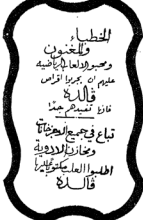 الخطباء
والمغنون
ومحبو الالعاب الرياضيه
عليهم ان يجربوا اقراص
ڤالدا
فانها تفيدهم جدًا
تباع في جميع الاجزاخانات
ومخازن الادوية
اطلبوا العلب مكتوب عليها
ڤالدا